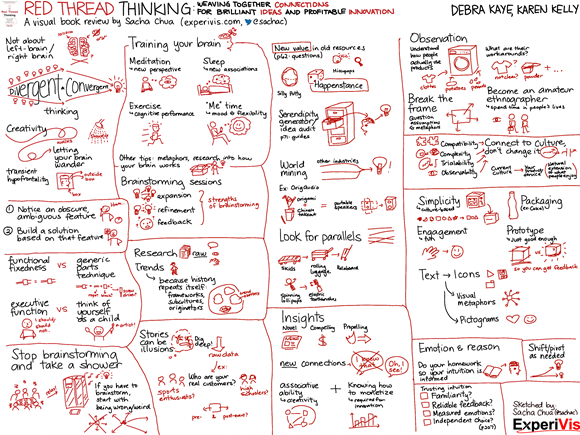 RED THREAD THINKING: WEAVING TOGETHER CONNECTIONS
FOR BRILLIANT IDEAS AND PROFITABLE INNOVATION
A visual book review by Sacha Chua (experivis.com, @sachac)
DEBRA KAYE, KAREN KELLY
Not about
left-brain/
right brain
Divergent + Convergent
thinking
Creativity
letting your
brain wander
transient
hypofrontality
outside
box
① Notice an obscure,
ambiguous feature
② Build a solution
based on that feature
functional
fixedness
vs
generic
parts
technique
executive
function
vs
think of
yourself
as a child
I should/
should not..
I'm an artist!
Stop brainstorming
and take a shower
If you have to
brainstorm,
start with
being wrong/weird
Training your brain
Meditation
→ new perspective
Sleep
→ new associations
Exercise
→ cognitive performance
"Me" time
→ mood & flexibility
Other tips: metaphors, research into how
your brain works
Brainstorming sessions
expansion
refinement
feedback
strengths of
brainstorming
Research
raw
Trends
because history
repeats itself:
frameworks,
subcultures,
originators
Stories
can be
illusions
Dig
deep!
raw data
ex:
Who are your
real customers?
sports
enthusiasts?
high schoolers?
pre-
2
post-game?
New value in old resources
(p62 - questions)
Silly Putty
Happenstance
Serendipity
generator/
idea audit
p71: guides
World
mining
other industries
Ex: OrigAudio
origami
+
Chinese
takeout
portable
speakers
Look for parallels
Skids
rolling
luggage
Rollaboard
Spinning
lollipops
electric
toothbrushes
Insights
Novel
Compelling
Propelling
NEWS
new connections
I knew that
Oh, I
see!
associative
ability
→ creativity
+
Knowing how
to monetize
→ required for
innovation
Observation
Understand
how people
actually use
products
What are their
workarounds?
clothes
potatoes
not clean?
powder
+ ...
Break the
frame
Question
assumptions
& metaphors
Become an amateur
ethnographer
→ spend time in people's lives
Compatibility
Complexity
Trialability
Observability
Connect to culture,
don't change it
Current
culture
product/
service
Natural
extension
of what
people enjoy
Simplicity
→ culture-based
Packaging
Engagement
Prototype
→ just good enough
so you can get feedback
Text → Icons
Visual
metaphors
Pictograms
Emotion & reason
Do your homework
so your intuition is
informed
Shift/pivot
as needed
Trusting intuition
Familiarity?
Reliable feedback?
Measured emotions?
Independent choice?
Sketched by:
Sacha Chua (@sachac)
ExperiVis